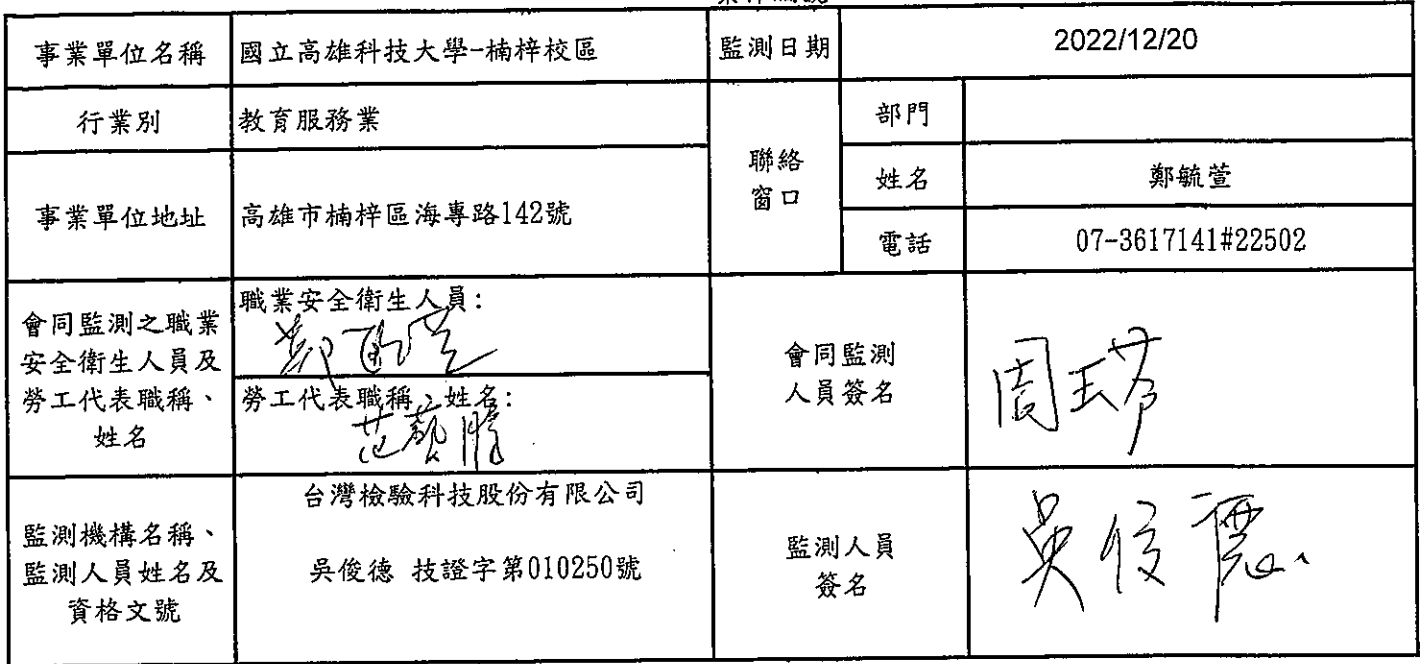 事業單位名稱
國立高雄科技大學-楠梓校區
監測日期
2022/12/20
行業別
教育服務業
聯絡
窗口
部門
姓名
鄭毓萱
事業單位地址
高雄市楠梓區海專路142號
電話
07-3617141#22502
會同監測之職業
安全衛生人員及
勞工代表職稱、
姓名
職業安全衛生人員:
鄭毓萱
勞工代表職稱、姓名:
范藝騰
會同監測
人員簽名
監測機構名稱、
監測人員姓名及
資格文號
台灣檢驗科技股份有限公司
吳俊德 技證字第010250號
監測人員
簽名
吳俊德